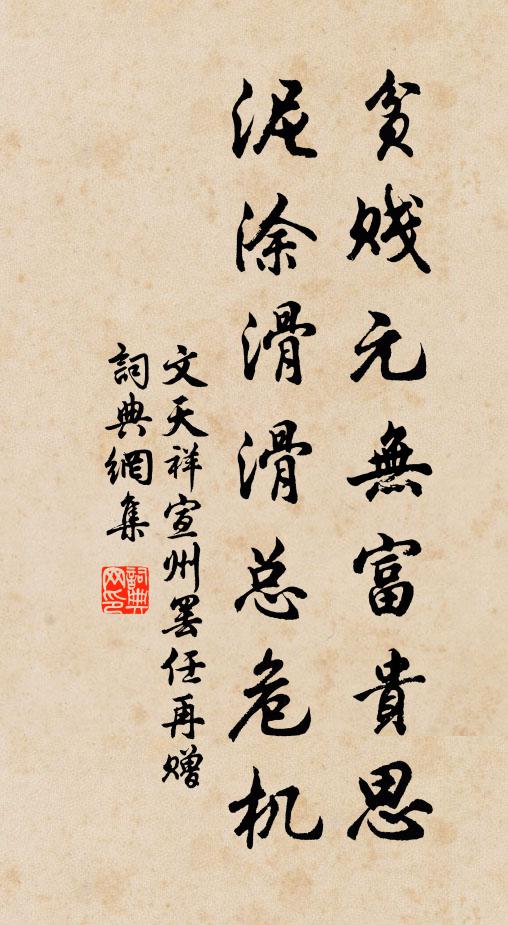 貧贱元無富貴思
泥涂滑滑总危机
文天祥宣州罢任再赠
詞典網集
詞典网印